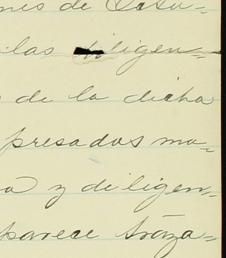 nes de Esta-
las diligen-
de la dicha
presados ma-
a y diligen-
parece traza-